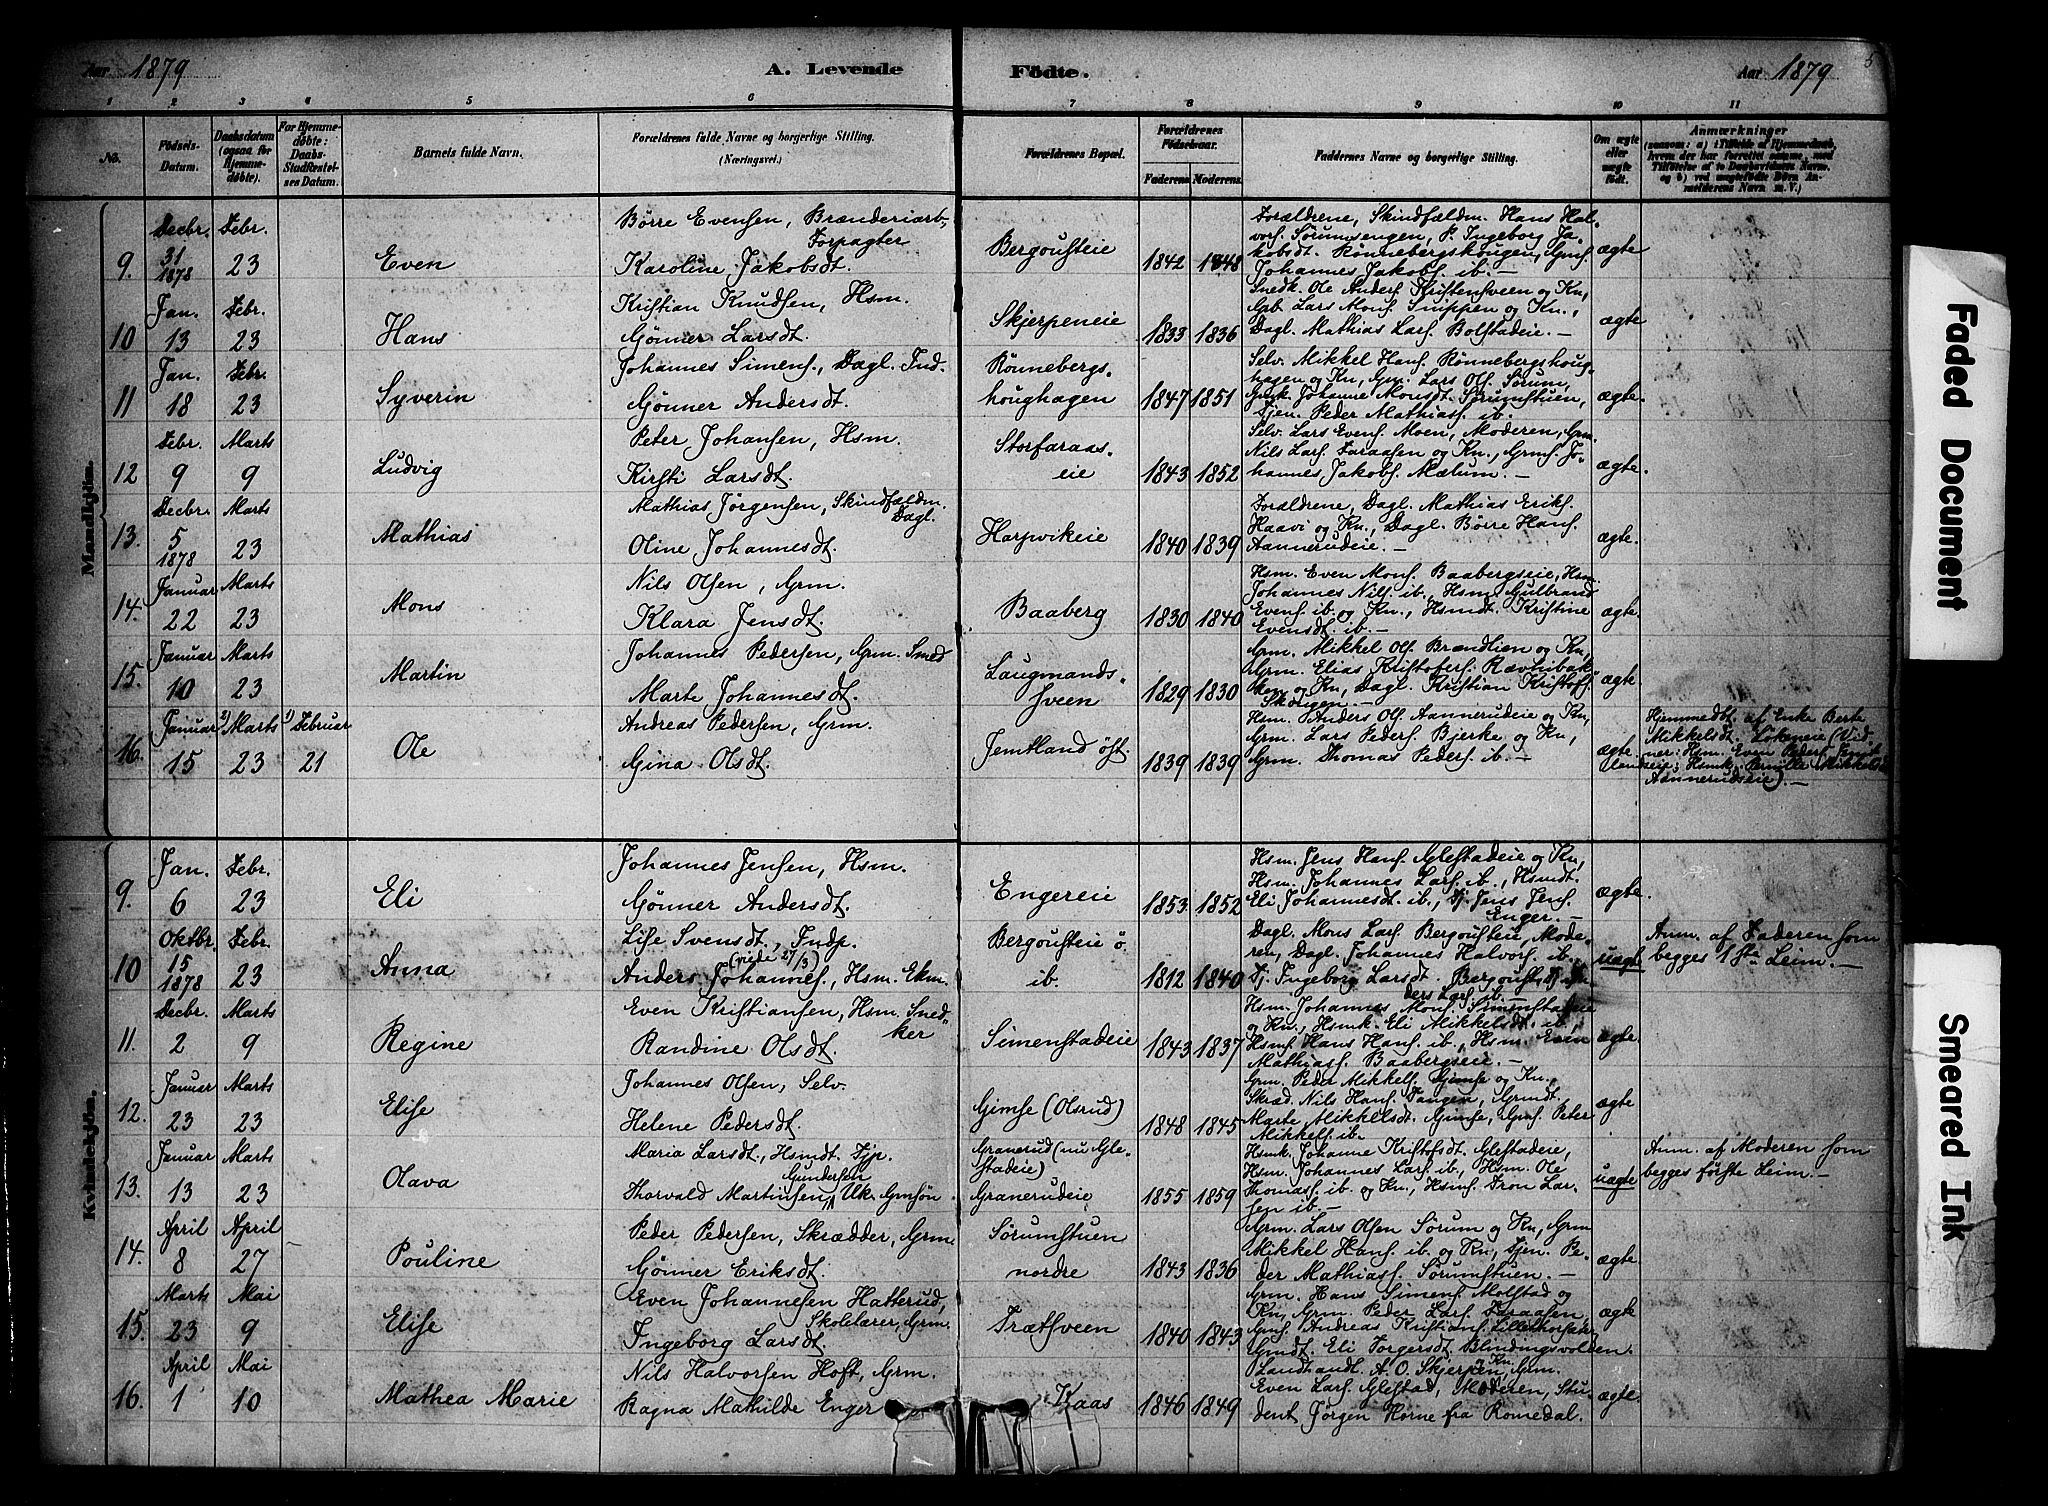 Aar 1879
A. Levende Födte.
Aar 1879
5
1 2 3 4 5 6 7 8 9 10 11
No.
Födsels-Datum.
Daabsdatum (ogsaa for Hjemmedøbte).
For Hjemmedøbte: Daabs-Stadfæstelses Datum.
Barnets fulde Navn.
Forældrenes fulde Navne og borgerlige Stilling. (Næringsvei.)
Forældrenes Bopæl.
Forældrenes Fødselsaar.
Faderens. Moderens.
Faddernes Navne og borgerlige Stilling.
Om ægte eller uægte født.
Anmærkninger
Mandkjön.
9. Decbr. 31 1878 Febr. 23 Even
Børre Evensen, Brænderiarb.
Forpagter
Karoline Jakobsdt.
Bergousteie 1842 1848
Forældrene, Skindfældm. Hans Hal-
vors. Sørumsengen, P. Ingeborg Ja-
kobsdt. Rønnebergskougen, Grms.
Johannes Jakobs. ib. ægte
10 Jan. 13 Febr. 23 Hans
Kristian Knudsen, Hsm.
Gønner Larsdt.
Skjerpeneie 1833 1836
Snedk. Ole Anders. Kristensveen og Kn,
Gab. Lars Mons. Snippen og Kn.,
Dagl. Mathias Lars. Bolstadeie. — ægte
11 Jan. 18 Febr. 23 Syverin
Johannes Simens., Dagl. Ind.
Gønner Andersdt.
Rønnebergs-
houghagen 1847 1851
Selv. Mikkel Hans. Rønnebergshoug-
hagen og Kn, Grm. Lars Ols. Sørum,
Gmk. Johanne Monsdt. Sørumstuen,
Tjen. Peder Mathias. ib. ægte.
12 Febr. 9 Marts 9 Ludvig
Peter Johansen, Hsm.
Kirsti Larsdt.
Storfaraas-
eie 1843 1852
Selv. Lars Evens. Moen, Moderen, Grm.
Nils Lars. Faraasen og Kn., Grms. Jo-
hannes Jakobs. Mælum. ægte.
13. Decbr. 5 1878 Marts 23 Mathias
Mathias Jørgensen, Skindfældm.
Dagl.
Oline Johannesdt.
Harpvikeie 1840 1839
Forældrene, Dagl. Mathias Eriks.
Haavi og Kn., Dagl. Børre Hans.
Aannerudeie. — ægte.
14. Januar 22 Marts 23 Mons
Nils Olsen, Grm.
Klara Jensdt.
Baaberg 1830 1840
Hsm. Even Mons. Baabergseie, Hsm.
Johannes Nils. ib., Hsm. Gulbrand
Evens. ib. og Kn., Hsmdt. Kristine
Evensdt. ib. — ægte
15. Januar 10 Marts 23 Martin
Johannes Pedersen, Grm. Smed
Marte Johannesdt.
Laugmands-
sveen 1829 1830
Grm. Mikkel Ols. Brændlien og Kn,
Grm. Elias Kristofers. Ravnibak-
ken og Kn, Dagl. Kristian Kristofs.
Skougen. — ægte
16. Januar 15 2) Marts 23 1) Februar 21 Ole
Andreas Pedersen, Grm.
Gina Olsdt.
Jemtland øst. 1839 1839
Hsm. Anders Ols. Aannerudeie og Kn,
Grm. Lars Peders. Bjerke og Kn,
Grm. Thomas Peders. ib. — ægte
Hjemmedt. af Enke Berte
Mikkelsdt. Løkneie (Vid-
ner: Hsm. Even Peders. Jemt-
landseie; Hsmk. Pernille Mikkelsd.
Aannerudseie). —
Kvindekjön.
9. Jan. 6 Febr. 23 Eli
Johannes Jensen, Hsm.
Gønner Andersdt.
Engereie 1853 1852
Hsm. Jens Hans. Glestadeie og Kn,
Hsm. Johannes Lars. ib., Hsmdt.
Eli Johannesdt. ib., Tj. Jens Jens.
Enger. — ægte.
10 Oktbr. 15 1878 Febr. 23 Anna
Lise Svensdt., Indp.
(vide 27/3)
Anders Johannes., Hsm. Ekm.
Bergousteie ö.
ib. 1812 1840
Dagl. Mons Lars. Bergousteie, Mode-
ren, Dagl. Johannes Halvors. ib.,
Tj. Ingeborg Larsdt. Bergoust, Tj. An-
ders Lars. ib. — uægt.
Anm. af Faderen som
begges 1ste Leim. —
11. Decbr. 2 Marts 9 Regine
Even Kristiansen, Hsm. Sned-
ker
Randine Olsdt.
Simenstadeie 1843 1837
Hsm. Johannes Mons. Simenstadeie
og Kn, Hsmk. Eli Mikkelsdt. ib.,
Hsms. Hans Hans. ib., Hsm. Even
Mathias. Baabergseie. — ægte.
12. Januar 23 Marts 23 Elise
Johannes Olsen, Selv.
Helene Pedersdt.
Gimse (Olsrud) 1848 1845
Grm. Peder Mikkels. Gimse og Kn.,
Skræd. Nils Hans. Tangen, Grmdt.
Marte Mikkelsdt. Gimse, Grms. Peter
Mikkels. ib. ægte
13. Januar 13 Marts 23 Olava
Maria Larsdt., Hsmdt. Tjp.
Gundersen
Thorvald Martinsen, Uk. Grmsøn.
Granerud (nu Gle-
stadeie)
Granerudeie 1855 1859
Hsmk. Johanne Kristofsdt. Glestadeie,
Hsm. Johannes Lars. ib., Hsm. Ole
Thomas. ib. og Kn., Hsms. Tron Lar-
sen ib. — uægte
Anm. af Moderen som
begges første Leim. —
14. April 8 April 27 Pouline
Peder Pedersen, Skrædder, Grm.
Gønner Eriksdt.
Sørumstuen
nordre 1843 1836
Grm. Lars Olsen Sørum og Kn, Grm
Mikkel Hans. ib. og Kn, Tjen. Pe-
der Mathias. Sørumstuen. — ægte
15. Marts 23 Mai 9 Elise
Even Johannesen Hatterud,
Skolelærer, Grm.
Ingeborg Larsdt.
Trætsveen 1840 1843
Grm. Hans Simens. Molstad og
Kn, Grm. Peder Lars. Faraasen,
Grms. Andreas Kristians. Lillethorseter,
Grmdt. Eli Torgersdt. Blindingsvolden. ægte
16. April 1 Mai 10 Mathea Marie
Nils Halvorsen Hoft, Grm.
Ragna Mathilde Enger
Kaas 1846 1849
Landhandl. A. O. Skjerpen og Kn, Grm.
Even Lars. Glestad, Moderen, Stu-
dent Jørgen Horne fra Romedal. ægte.
Faded Document
Smeared Ink